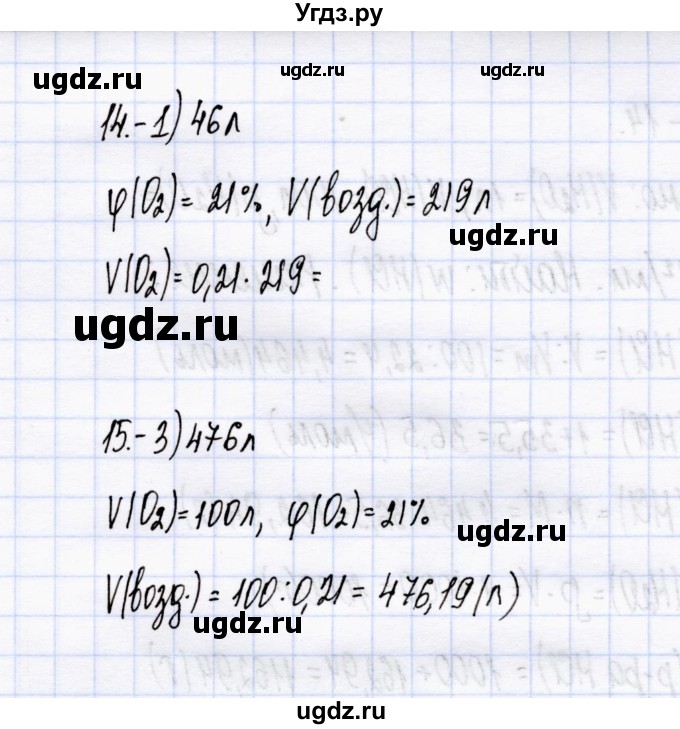 Угдз.ру
ugdz.ru ugdz.ru ugdz.ru
14.-1) 46л
φ(O₂)= 21%, V(возд.)= 219 л
ugdz.ru
V(O₂)= 0,21·219=
ugdz.ru
15.-3) 476л
V(O₂)=100л, φ(O₂)=21%
ugdz.ru
V(возд.)= 100:0,21= 476,19(л)
ugdz.ru
ugdz.ru